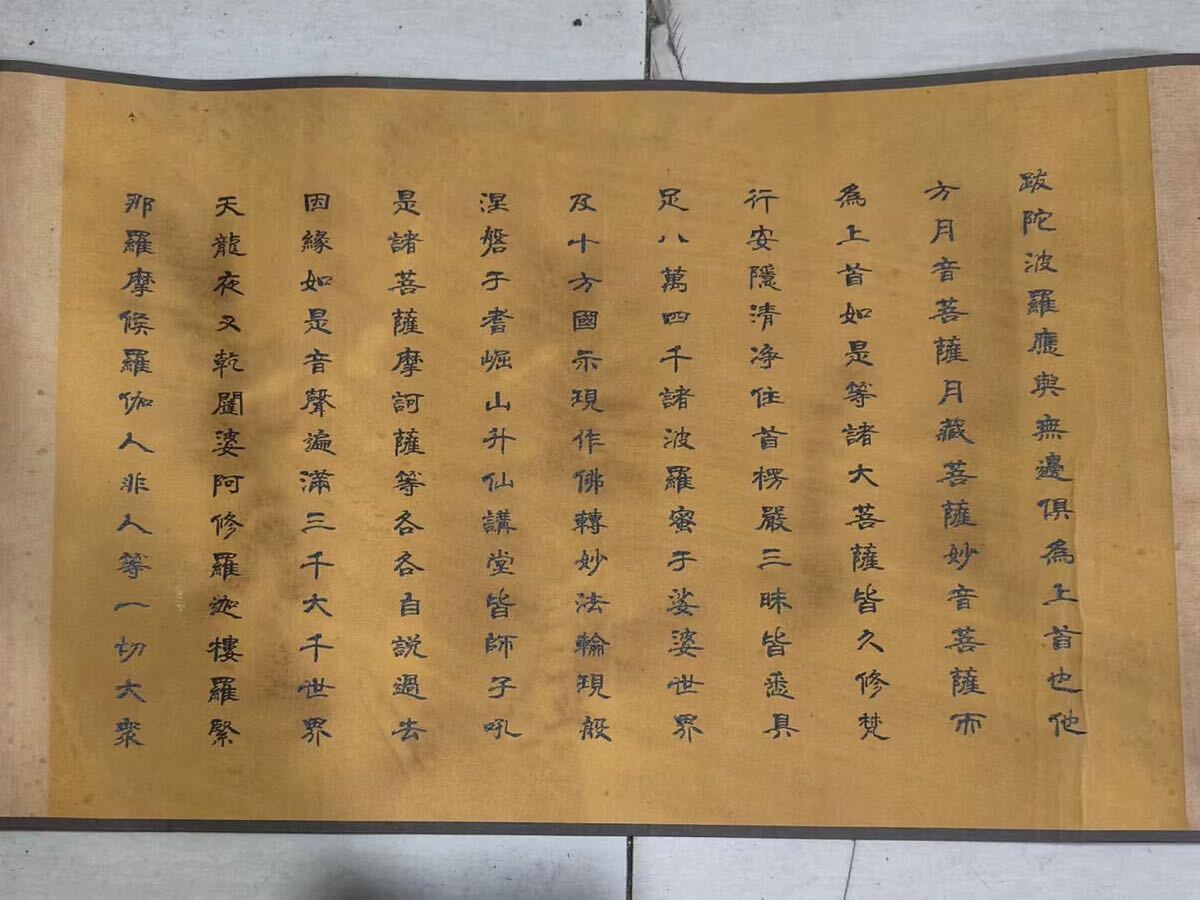 跋陀波羅應與無邊俱為上首也他
方月音菩薩月藏菩薩妙音菩薩而
為上首如是等諸大菩薩皆久修梵
行安隱清净住首楞嚴三昧皆悉具
足八萬四千諸波羅蜜于娑婆世界
及十方國示現作佛轉妙法輪現般
涅磐于耆崛山升仙講堂皆師子吼
是諸菩薩摩訶薩等各各自説過去
因緣如是音聲遍滿三千大千世界
天龍夜叉乾闥婆阿修羅迦樓羅緊
那羅摩候羅伽人非人等一切大衆